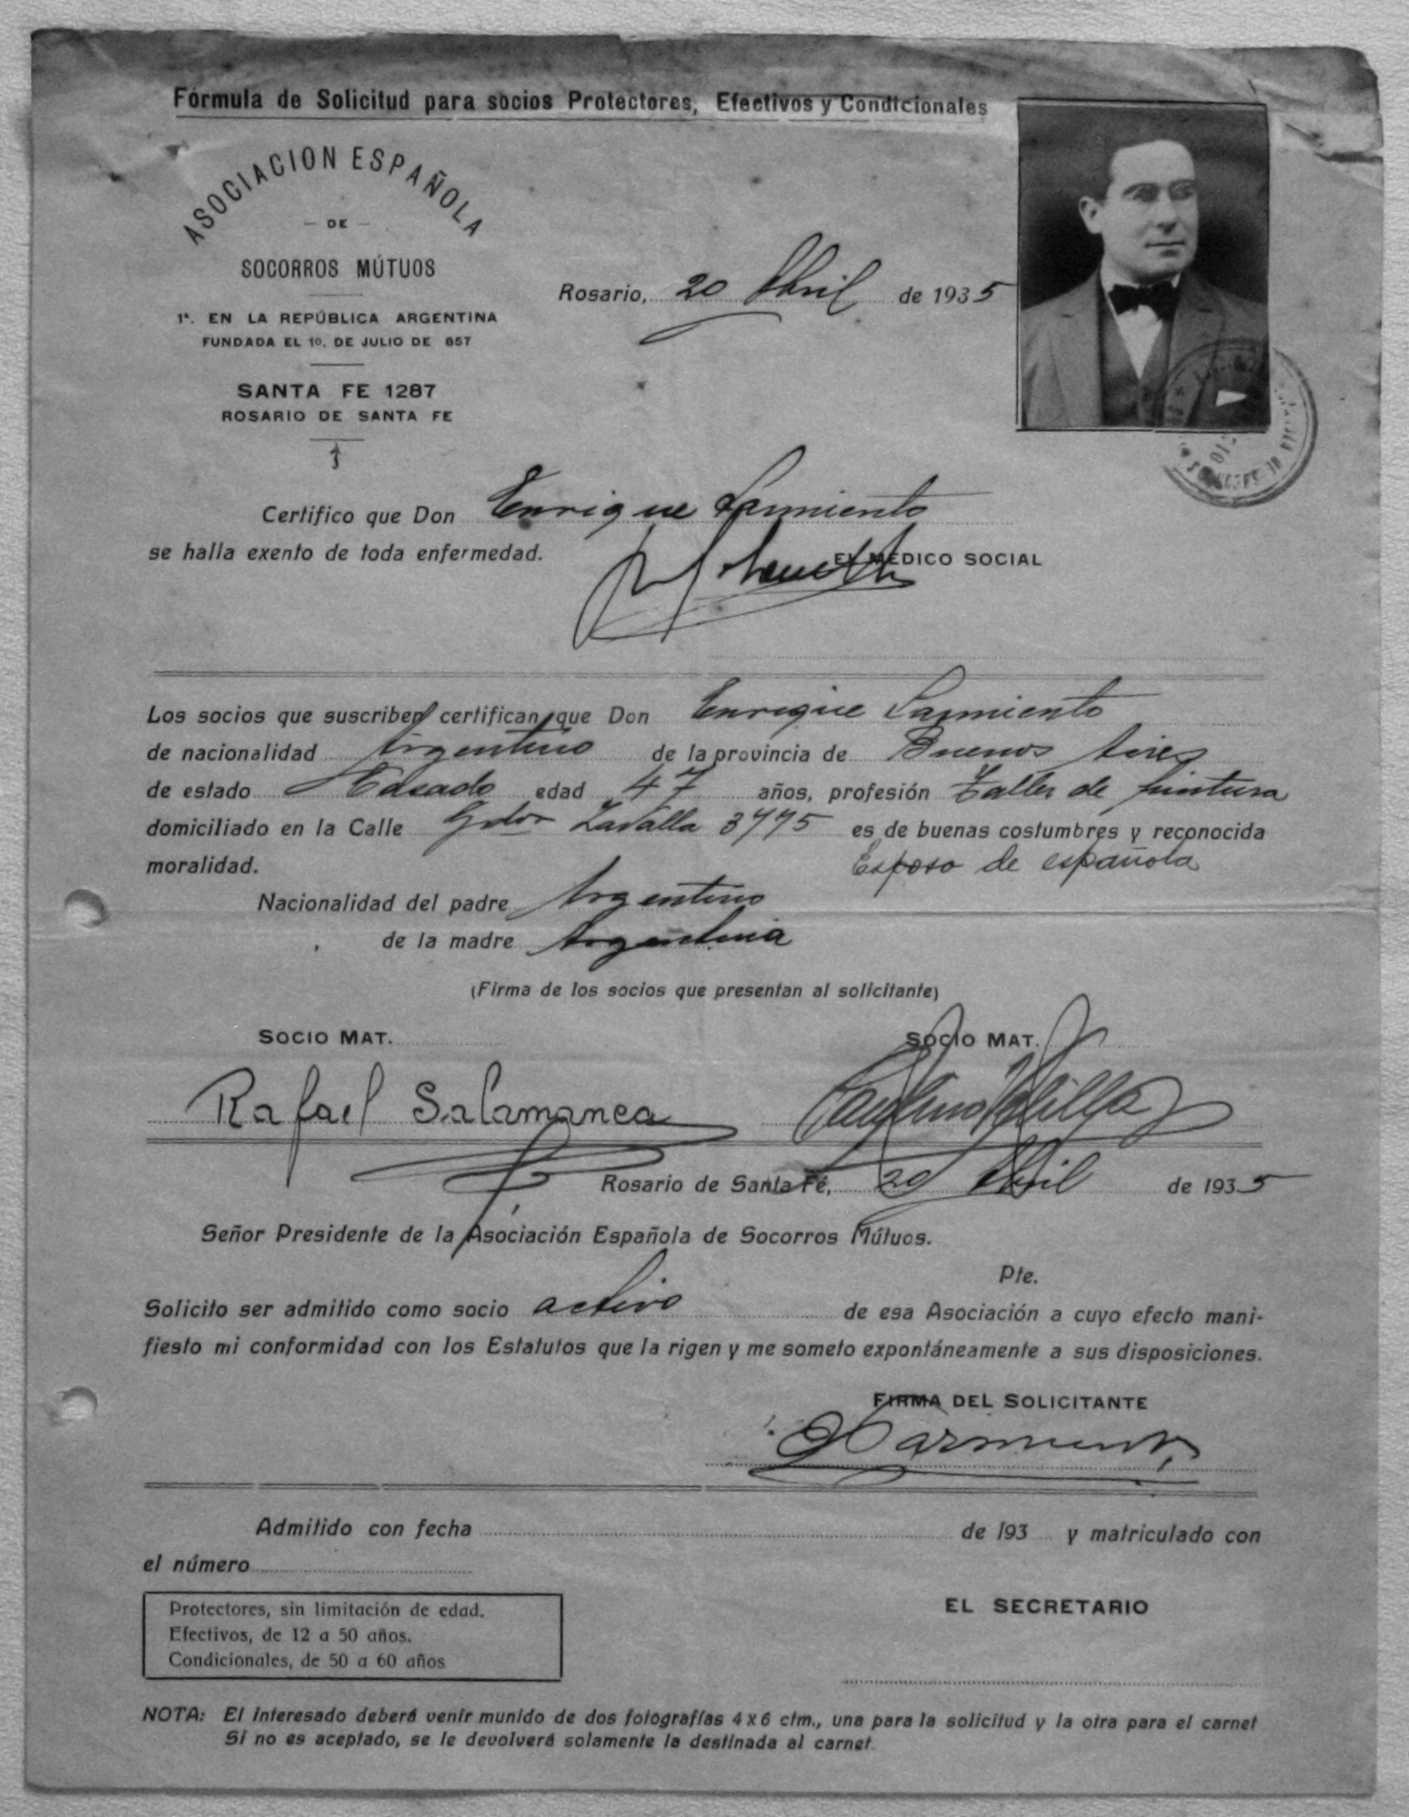 Fórmula de Solicitud para socios Protectores, Efectivos y Condicionales
ASOCIACION ESPAÑOLA
— DE —
SOCORROS MÚTUOS
1ª. EN LA REPÚBLICA ARGENTINA
FUNDADA EL 10. DE JULIO DE 857
SANTA FE 1287
ROSARIO DE SANTA FE
Rosario, 20 Abril de 1935
Certifico que Don Enrique Sarmiento
se halla exento de toda enfermedad.
EL MÉDICO SOCIAL
Los socios que suscriben certifican que Don Enrique Sarmiento
de nacionalidad Argentino de la provincia de Buenos Aires
de estado Casado edad 47 años, profesión Taller de pintura
domiciliado en la Calle Gdor Zavalla 3775 es de buenas costumbres y reconocida
moralidad. Esposo de española
Nacionalidad del padre Argentino
de la madre Argentina
(Firma de los socios que presentan al solicitante)
SOCIO MAT. SOCIO MAT.
Rafael Salamanca
Rosario de Santa Fé, 20 Abril de 1935
Señor Presidente de la Asociación Española de Socorros Mútuos.
Pte.
Solicito ser admitido como socio activo de esa Asociación a cuyo efecto mani-
fiesto mi conformidad con los Estatutos que la rigen y me someto expontáneamente a sus disposiciones.
FIRMA DEL SOLICITANTE
Sarmiento
Admitido con fecha de 193 y matriculado con
el número
EL SECRETARIO
Protectores, sin limitación de edad.
Efectivos, de 12 a 50 años.
Condicionales, de 50 a 60 años
NOTA: El interesado deberá venir munido de dos fotografías 4 x 6 ctm., una para la solicitud y la otra para el carnet
Si no es aceptado, se le devolverá solamente la destinada al carnet.